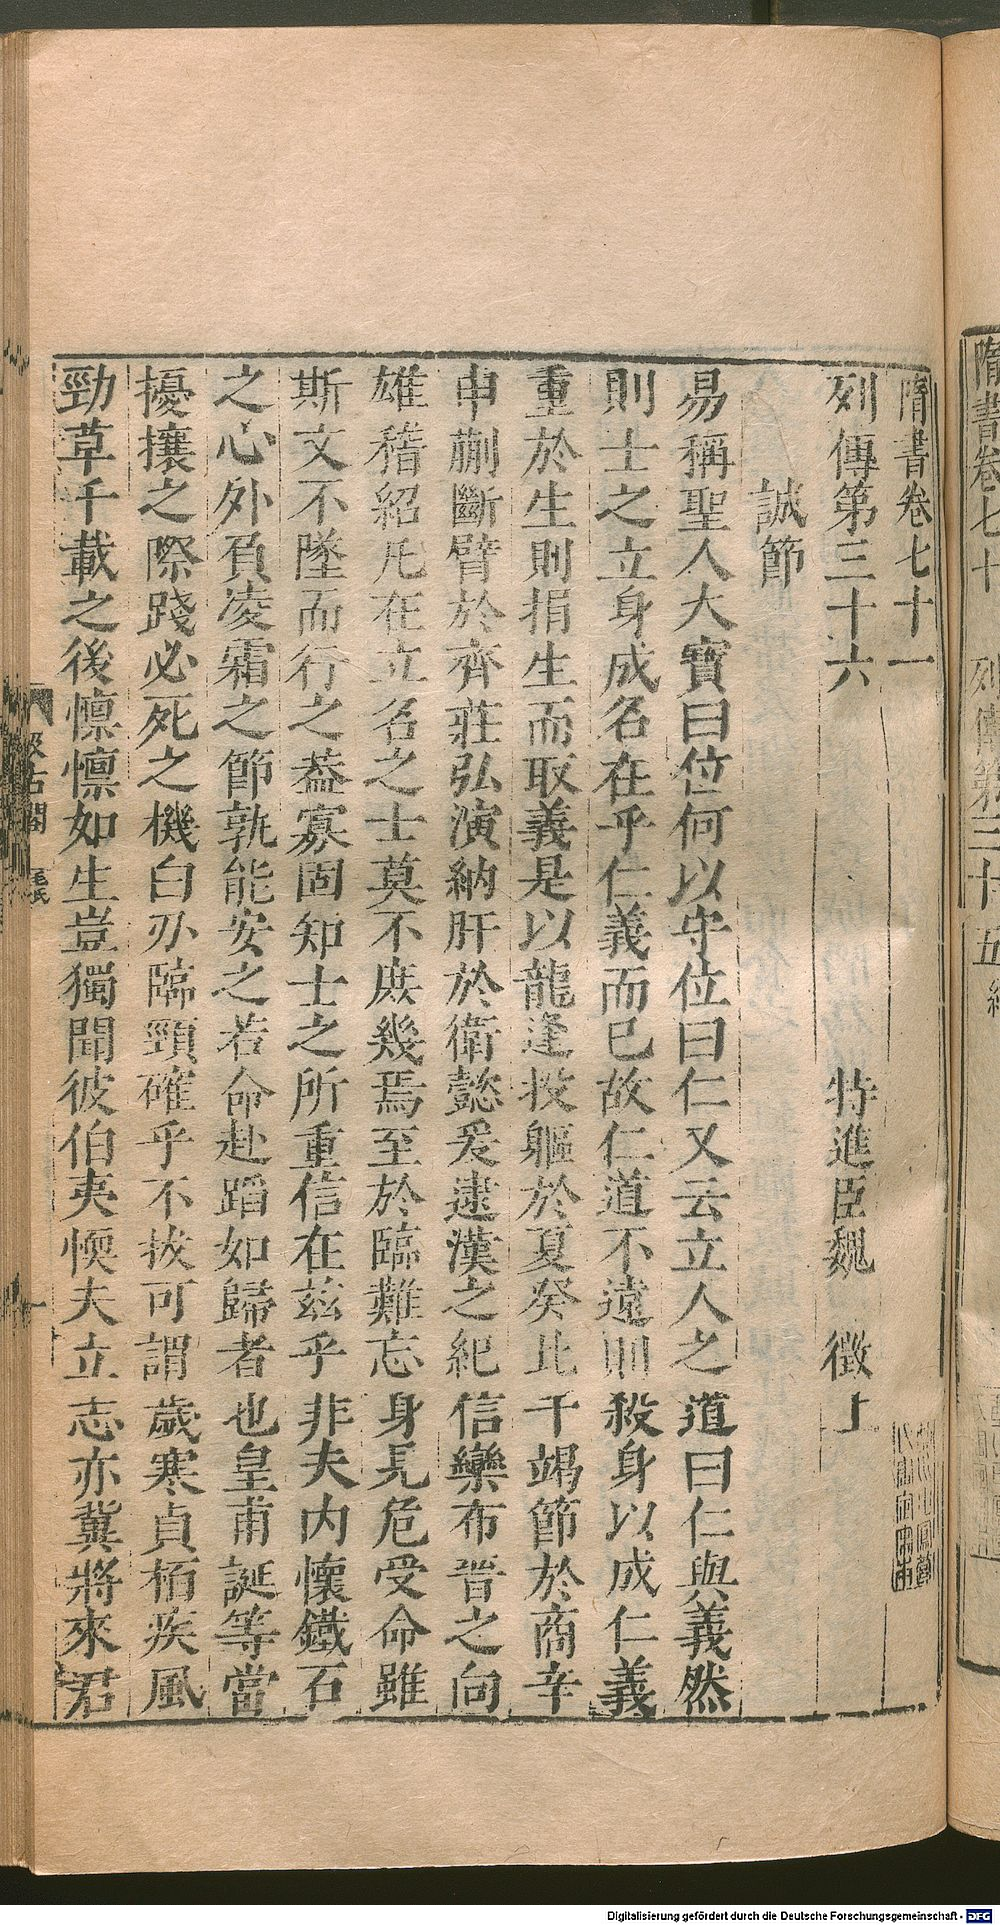 隋書卷七十一
列傳第三十六　特進臣魏　徵上
誠節
易稱聖人大寶曰位何以守位曰仁又云立人之道曰仁與義然
則士之立身成名在乎仁義而已故仁道不遠則殺身以成仁義
重於生則捐生而取義是以龍逢投軀於夏癸比干竭節於商辛
申蒯斷臂於齊莊弘演納肝於衛懿爰逮漢之紀信欒布晉之向
雄稽紹凡在立名之士莫不庶幾焉至於臨難忘身見危受命雖
斯文不墜而行之葢寡固知士之所重信在茲乎非夫內懷鐵石
之心外負凌霜之節孰能安之若命赴蹈如歸者也皇甫誕等當
擾攘之際踐必死之機白刃臨頸確乎不拔可謂歲寒貞栢疾風
勁草千載之後懍懍如生豈獨聞彼伯夷懦夫立志亦冀將來君
汲古閣
毛氏
一
隋書卷七十　列傳第三十五
Digitalisierung gefördert durch die Deutsche Forschungsgemeinschaft - DFG